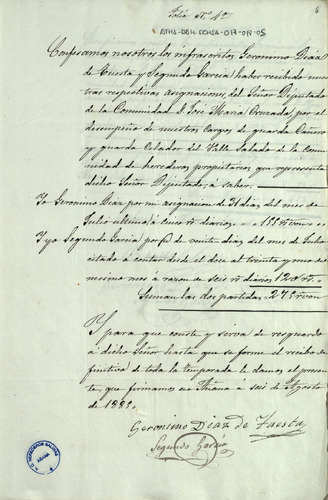 Folio N.º 4º
6
ATHA-DAH-FCHSA-017-019-05
Confesamos nosotros los infrascritos Geronimo Diaz
de Tuesta y Segundo Garcia haber recibido nues
tras respectivas asignaciones del Señor Diputado
de la Comunidad D. José Maria Oruzada, por el
desempeño de nuestros cargos de guarda
y guarda Celador del Valle Salado de la comu
nidad de herederos propietarios que representa
dicho Señor Diputado, á saber.
Yo Geronimo Diaz por mi asignacion de 31 dias del mes de
Julio ultimo á cinco rs diarios 155 rs von
Y yo Segundo Garcia por de veinte dias del mes de Julio
citado á contar desde el doce al treinta y uno
mismo mes á razon de seis rs diarios 120 rs
Suman las dos partidas 275 rs von
Y para que conste y sirva de resguardo
á dicho Señor hasta que se forme el recibo de
finitivo de toda la temporada le damos el presen
te, que firmamos en Añana á seis de Agosto
de 1885.
Geronimo Diaz de Tuesta
Segundo Garcia